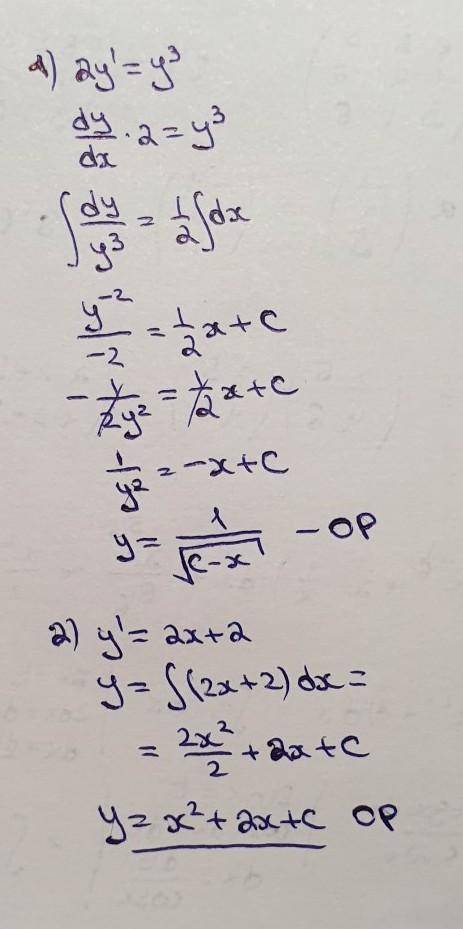 1) 2y' = y³
dy/dx · 2 = y³
∫ dy/y³ = 1/2 ∫ dx
y⁻²/-2 = 1/2 x + C
- 1/2y² = 1/2 x + C
1/y² = -x + C
y = 1/√(C-x) - ОР
2) y' = 2x + 2
y = ∫(2x+2) dx =
= 2x²/2 + 2x + C
y = x² + 2x + C ОР